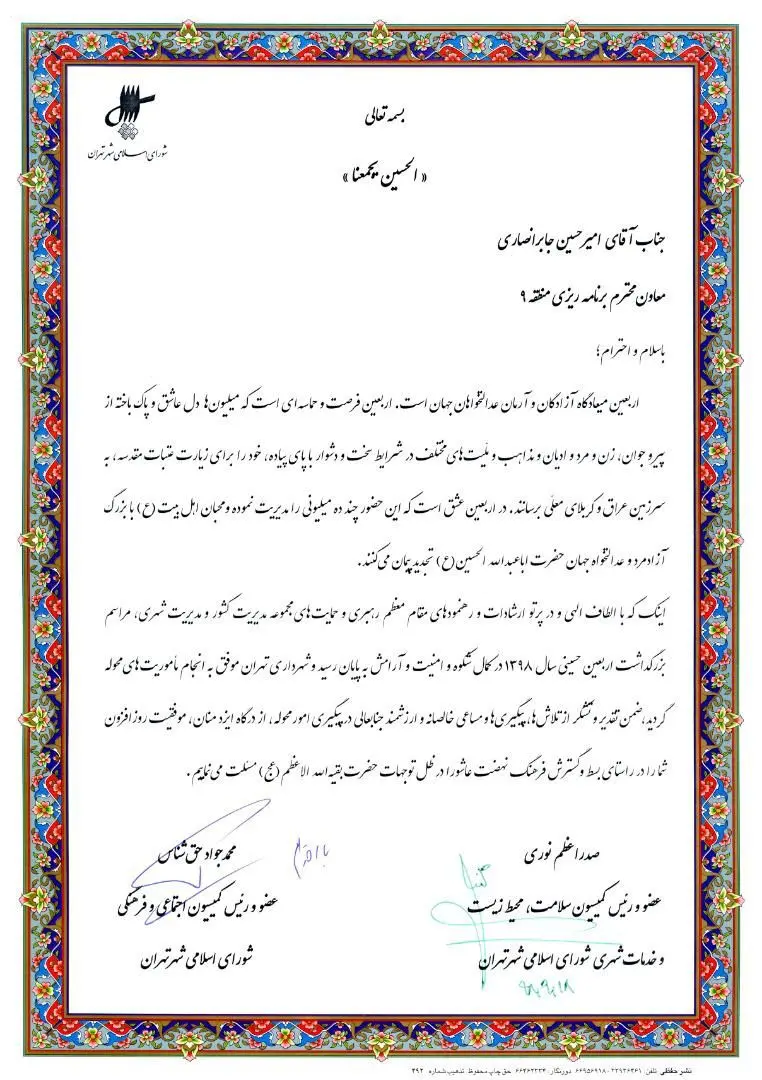 بسمه تعالی
شورای اسلامی شهر تهران
« الحسین یجمعنا »
جناب آقای امیرحسین جابرانصاری
معاون محترم برنامه ریزی منطقه ۹
باسلام و احترام؛
اربعین میعادگاه آزادگان و آرمان عدالتخواهان جهان است. اربعین فرصت و حماسه ای است که میلیون‌ها دل عاشق و پاک باخته از
پیر و جوان، زن و مرد و ادیان و مذاهب و ملّیت‌های مختلف در شرایط سخت و دشوار با پای پیاده، خود را برای زیارت عتبات مقدسه، به
سرزمین عراق و کربلای معلّی برسانند. در اربعین عشق است که این حضور چند ده میلیونی را مدیریت نموده و محبان اهل بیت (ع) با بزرگ
آزادمرد و عدالتخواه جهان حضرت اباعبدالله الحسین(ع) تجدید پیمان می‌کنند.
اینک که با الطاف الهی و در پرتو ارشادات و رهنمودهای مقام معظم رهبری و حمایت‌های مجموعه مدیریت کشور و مدیریت شهری، مراسم
بزرگداشت اربعین حسینی سال ۱۳۹۸ در کمال شکوه و امنیت و آرامش به پایان رسید و شهرداری تهران موفق به انجام مأموریت‌های محوله
گردید، ضمن تقدیر و تشکر از تلاش‌ها، پیگیری‌ها و مساعی خالصانه و ارزشمند جنابعالی در پیگیری امور محوله، از درگاه ایزد منان، موفقیت روزافزون
شما را در راستای بسط و گسترش فرهنگ نهضت عاشورا در ظل توجهات حضرت بقیه‌الله الاعظم (عج) مسئلت می‌نماییم.
صدراعظم نوری
عضو و رئیس کمیسیون سلامت، محیط زیست
و خدمات شهری شورای اسلامی شهر تهران
با احترام
محمدجواد حق شناس
عضو و رئیس کمیسیون اجتماعی و فرهنگی
شورای اسلامی شهر تهران
نشر حفظی تلفن: ۲۲۹۲۶۴۶۱ - ۶۶۹۵۶۹۱۸ دورنگار: ۶۶۴۶۲۲۲۴ حق چاپ محفوظ. تذهیب شماره ۴۹۲